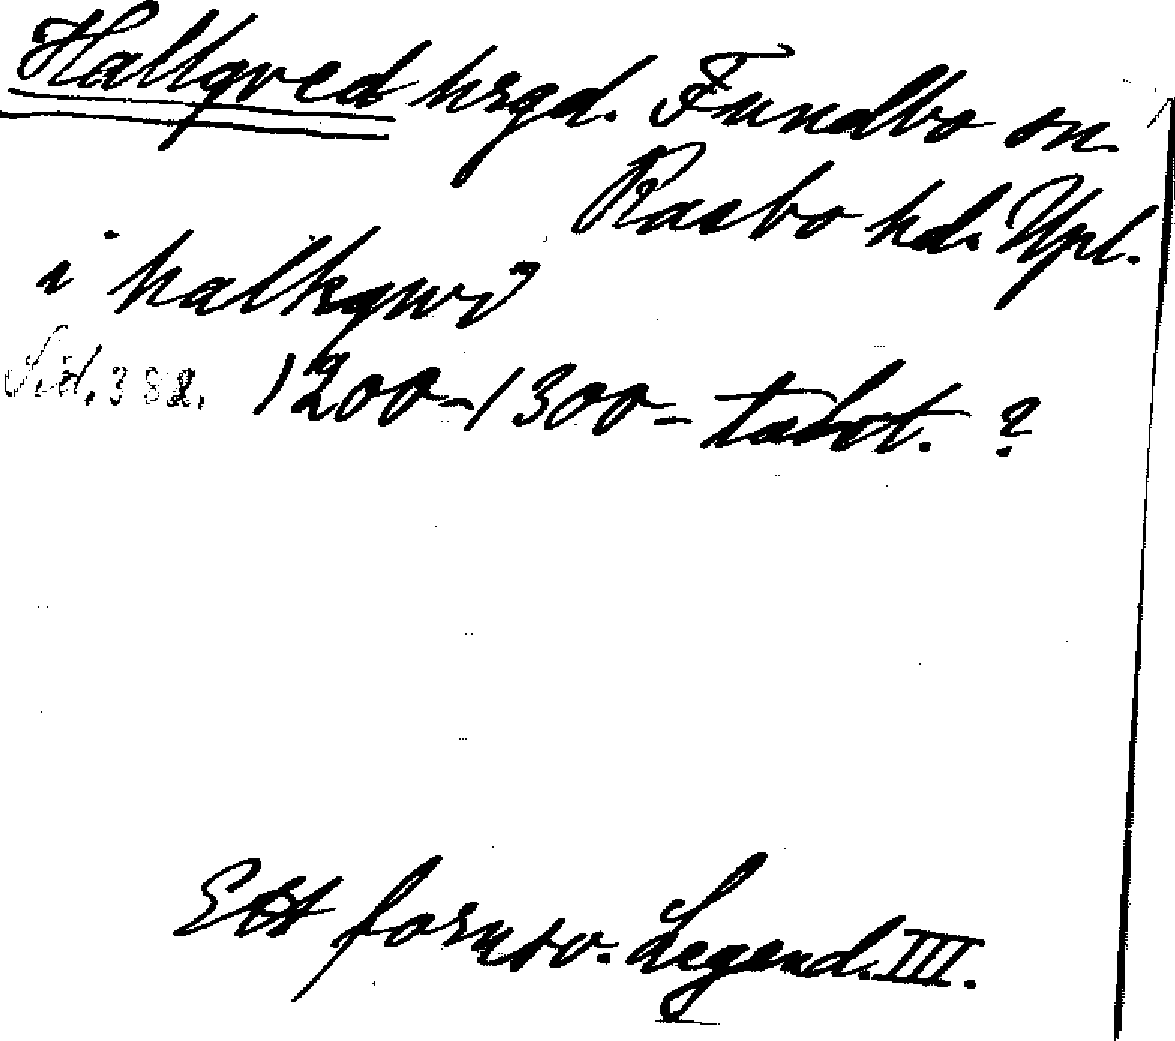 Hallqved hrgd. Funbo sn.
Rasbo hd. Upl.
i halkqwi
Sid. 382. 1200-1300-talet. ?
Ett fornsv. Legend. III.